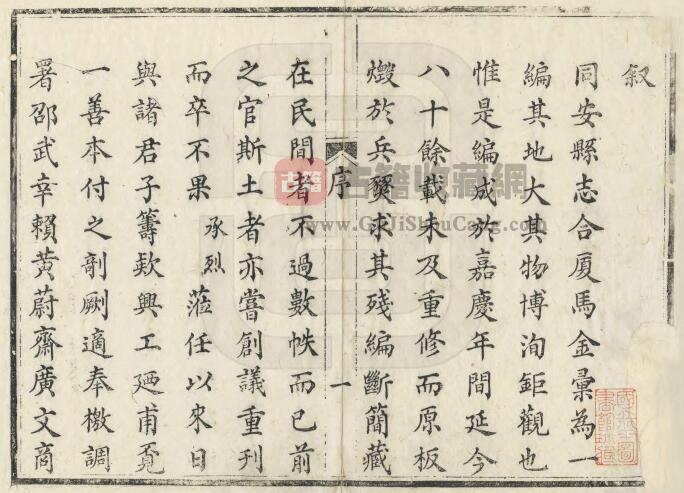 叙
同安縣志合厦馬金彙為一
編其地大其物博洵鉅觀也
惟是編成於嘉慶年間延今
八十餘載未及重修而原板
燬於兵燹求其残編斷簡藏
序
一
在民間者不過數帙而已前
之官斯土者亦嘗創議重刊
而卒不果承烈蒞任以來日
與諸君子籌欵興工廼甫覔
一善本付之剞劂適奉檄調
署邵武幸賴黃蔚齋廣文商
古籍
古籍收藏網
www.GuJiShouCang.com